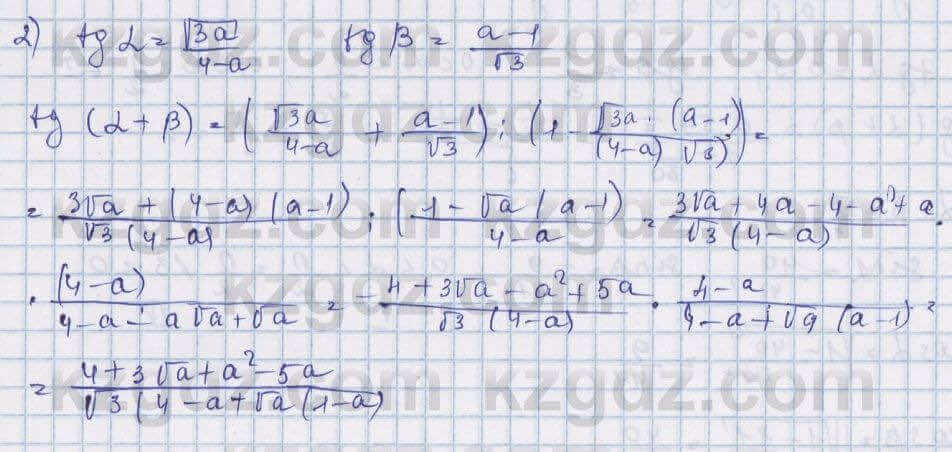 2) tg α = √3a / 4-a tg β = a-1 / √3
tg (α + β) = (√3a / 4-a + a-1 / √3) : (1 - √3a · (a-1) / (4-a) √3) =
= 3√a + (4-a) (a-1) / √3 (4-a) : (1 - √a (a-1) / 4-a = 3√a + 4a - 4 - a² + a / √3 (4-a) ·
· (4-a) / 4-a - a√a + √a = -4 + 3√a - a² + 5a / √3 (4-a) · 4-a / 4-a + √a (a-1) =
= 4 + 3√a + a² - 5a / √3 (4-a + √a (1-a)
kzgdz.com kzgdz.com
kzgdz.com kzgdz.com
kzgdz.com kzgdz.com
kzgdz.com kzgdz.com
kzgdz.com kzgdz.com